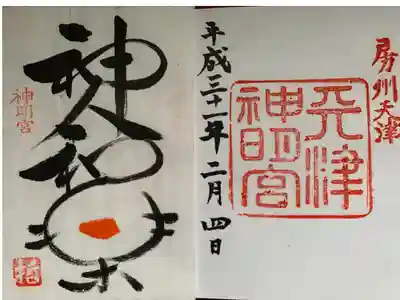 房州天津
天津
神明宮
平成三十一年二月四日
神和楽
神明宮